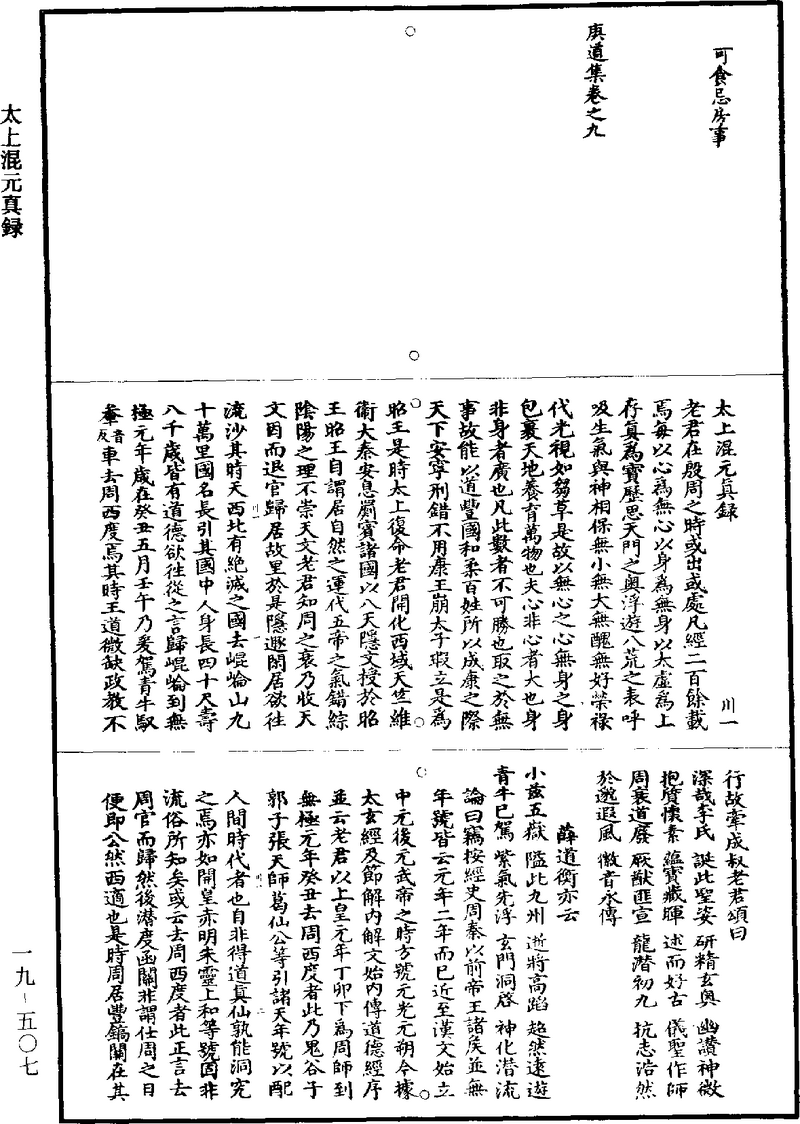 太上混元真録
可食忌房事
庚道集卷之九
太上混元真録
川一
老君在殷周之時或出或處凡經二百餘載
焉每以心為無心以身為無身以太虛為上
存真為寶歷思天門之奧浮遊八荒之表呼
吸生氣與神相保無小無大無醜無好榮祿
代光視如芻草是故以無心之心無身之身
包裹天地養育萬物也夫心非心者大也身
非身者廣也凡此數者不可勝也取之於無
事故能以道豐國和柔百姓所以成康之際
天下安寧刑錯不用康王崩太子瑕立是為
昭王是時太上復命老君開化西域天竺維
衛大秦安息罽賓諸國以八天隱文授於昭
王昭王自謂居自然之運代五帝之氣錯綜
陰陽之理不崇天文老君知周之衰乃收天
文因而退官歸居故里於是隱遯閑居欲往
流沙其時天西北有絶滅之國去崐崘山九
十萬里國名長引其國中人身長四十尺壽
八千歲皆有道德欲徃從之言歸崐崘到無
極元年歲在癸丑五月壬午乃爰駕青牛馭
輂音反車去周西度焉其時王道微缺政教不
行故韋成叔老君頌曰
深哉李氏 誕此聖姿 研精玄奧 幽讚神微
抱質懷素 蘊寶藏暉 述而好古 儀聖作師
周衰道廢 厥猷匪宣 龍潛初九 抗志浩然
於邈遐風 徽音永傳
薛道衡亦云
小兹五嶽 隘此九州 逝將高蹈 超然遠遊
青牛已駕 紫氣先浮 玄門洞啓 神化潛流
論曰竊按經史周秦以前帝王諸侯並無
年號皆云元年二年而已近至漢文始立
中元後元武帝之時方號元光元朔今據
太玄經及節解內解文始內傳道德經序
並云老君以上皇元年丁卯下為周師到
無極元年癸丑去周西度者此乃鬼谷子
郭子張天師葛仙公等引諸天年號以配
人間時代者也自非得道真仙孰能洞究
之焉亦如開皇赤明朱靈上和等號固非
流俗所知矣或云去周西度者此正言去
周官而歸然後潛度函關非謂仕周之日
便即公然西適也是時周居豐鎬關在其
一九-五〇七